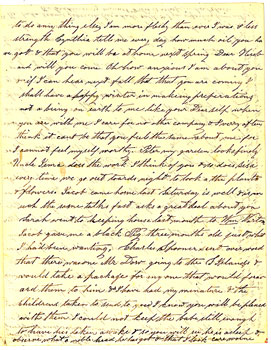 to do any thing else, I am more fleshy than ever I was, & less
strength Cynthia tell us every day how much oil you ha
ve got & that you will be at home next spring Dear
and will you come. Oh how anxious I am about you
if I can hear next fall that that you are coming I
shall have a happy winter in making preparations
not a being on earth to me like your Dear self when
you are with me I care for no other company & I very often
think it cant be that you feel the same about me for
I cannot feel myself worthy. My garden looks finely
Uncle does the work I think of you & so does
ever time we go out towards night to look at the plants
& flowers Jacob came home last Saturday is well &
talks fast asks a great deal about you
Sarah went to keeping house last month to
Jacob gave me a black three months old just what
I had been wanting, Charles Spooner sent over word
that there was one Mr going to the S Islands &
would take a package for my one that would forw
ard them to him & I have had my miniature & the
childrens taken to send, to you I know you will be pleased
with them I could not keep the babe still enough
to have his taken awake & so you will see he is asleep &
observe what a noble head he has got & that I look care worn